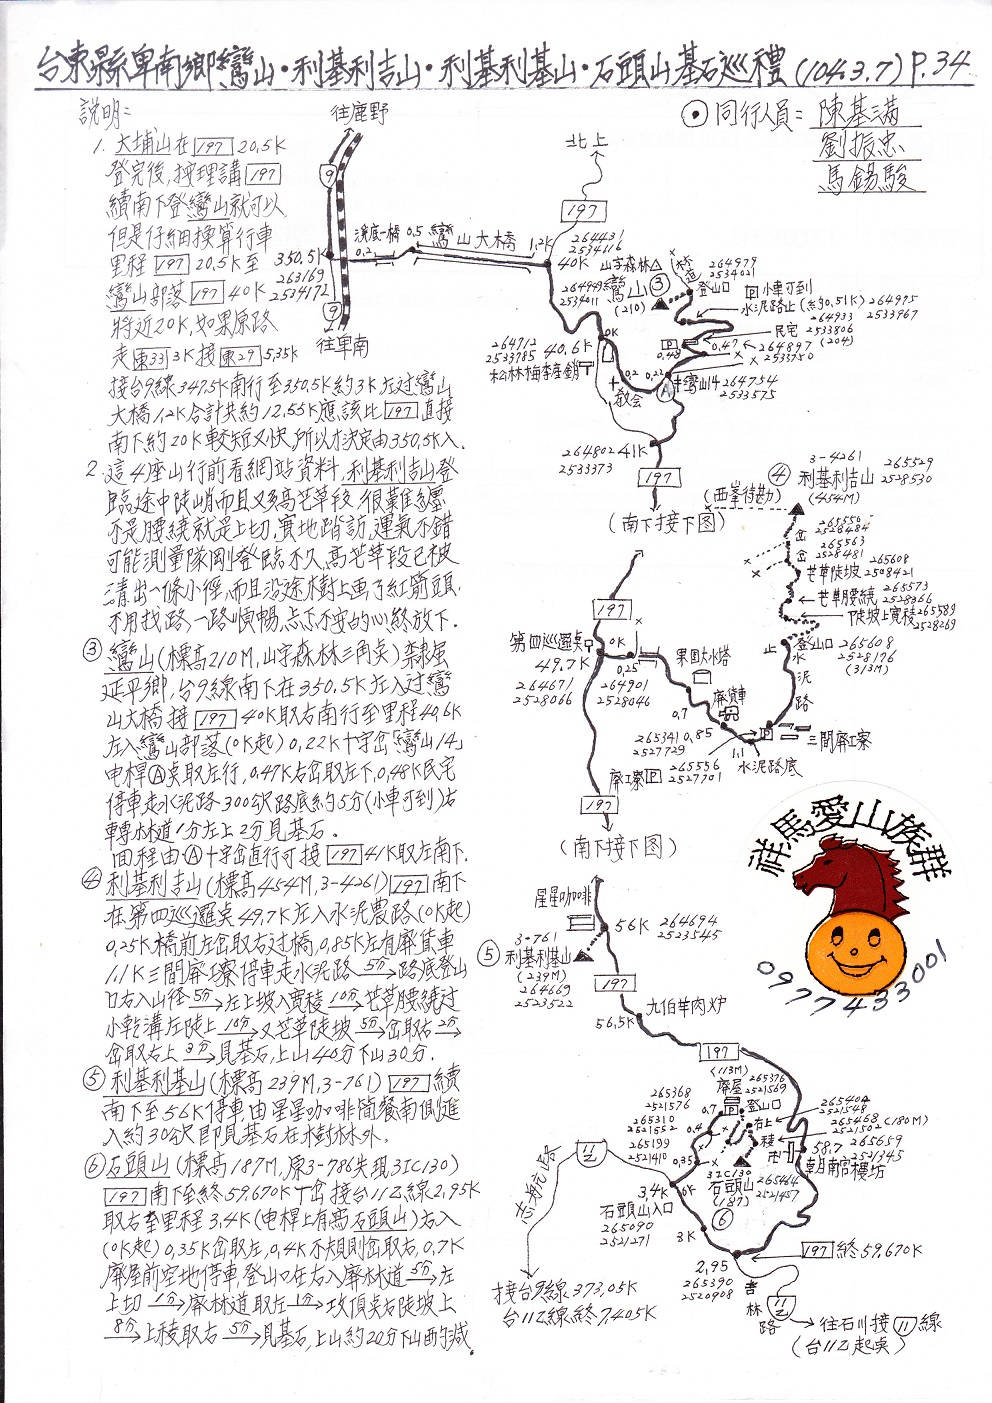 台東縣卑南鄉鸞山・利基利吉山・利基利基山・石頭山基石巡禮(104.3.7) P.34
說明:
1. 大埔山在 197 20.5K
登完後,按理講 197
續南下登鸞山就可以
但是仔細換算行車
里程 197 20.5K至
鸞山部落 197 40K
將近20K,如果原路
走 東33 3K接 東29 5.35K
接台9線347.5K南行至350.5K約3K左過鸞山
大橋1.2K合計共約12.55K應該比 197 直接
南下約20K較短又快,所以才決定由350.5K入.
2. 這4座山行前看網站資料,利基利吉山登
臨途中陡峭而且又多高芒草段,很難纏
不是腰繞就是上切,實地踏訪,運氣不錯
可能測量隊剛登臨不久,高芒草段已被
清出一條小徑,而且沿途樹上畫了紅箭頭
不用找路,一路順暢,忐忑不安的心終放下.
③ 鸞山(標高210M,山字森林三角點)隸屬
延平鄉,台9線南下在350.5K左入過鸞
山大橋接 197 40K取右南行至里程40.6K
左入鸞山部落(0K起)0.22K十字岔「鸞山14」
电桿Ⓐ點取左行,0.47K右岔取左下,0.48K民宅
停車走水泥路300公尺路底約5分(小車可到)右
轉林道1分左上2分見基石.
回程由Ⓐ十字岔直行可接 197 41K取左南下.
④ 利基利吉山(標高454M,3-4261) 197 南下
在第四巡邏點49.7K左入水泥農路(0K起)
0.25K橋前左岔取右過橋,0.85K左有廢貨車
1.1K三間廢工寮停車走水泥路 5分→路底登山
口右入山徑 5分→左上坡入寬稜 10分→芒草腰繞過
小乾溝左陡上 10分→又芒草陡坡 5分→岔取右 2分→
岔取右上 3分→見基石,上山40分下山30分.
⑤ 利基利基山(標高239M,3-761) 197 續
南下至56K停車由星星咖啡簡餐南側進
入約30公尺即見基石在樹林外.
⑥ 石頭山(標高187M,原3-786失現3IC130)
197 南下至終59.670K丁岔接台11乙線2.95K
取右至里程3.4K(电桿上有寫石頭山)右入
(0K起)0.35K岔取左,0.4K不規則岔取右,0.7K
廢屋前空地停車,登山口在右入廢林道 5分→左
上切 1分→廢林道取左 1分→攻頂點右陡坡上
8分→上稜取右 5分→見基石,上山約20分下山酌減.
⊙同行人員: 陳基滿
劉振忠
馬錫駿
往鹿野
9
350.5K
263169
2534172
9
往卑南
溪底一橋
0.2
0.5
鸞山大橋
1.2K
北上
197
264431
2534116
40K
山字森林△
264949
2534011
鸞山③
(210)
林道
264979
2534021
登山口
P 小車可到
水泥路止(約0.51K) 264975
2533967
264933
2533806
民宅 (204)
P
0.48
0.47
264897
2533750
264712
2533785
40.6K
0K
松林梅李產銷
0.2
0.22
教会
A
鸞山14
264754
2533575
264802
2533373
41K
197
(南下接下图)
3-4261
④ 利基利吉山
(454M)
265529
2528530
(西峯待勘)
岔
265556
2528484
岔
265563
2528481
265608
芒草陡坡 2528421
265573
芒草腰繞 2528366
陡坡上寬稜 265589
2528269
止
登山口
265608
2528176
(313M)
水泥路
197
第四巡邏點
49.7K
264671
2528066
0K
0.25
264901
2528046
果园大水塔
廢貨車
0.7
0.85
265341
2527729
廢工寮 P
265556
2527701
P
1.1
水泥路底
三間廢工寮
197
(南下接下图)
祥馬愛山族群
0977433001
星星咖啡
56K
264694
2523545
3-761
⑤ 利基利基山
(239M)
264669
2523522
197
56.5K
九伯羊肉炉
197
(113M)
廢屋
265376
2521569
265368
2521576
0.7
P
登山口
265310
2521552
0.4
265199
2521410
0.35
右上
265404
2521548
265468
2521502 (180M)
稜
卍
58.7
265659
2521345
朝南宮樓坊
3IC130
石頭山
(187)
⑥
265464
2521457
志航路
11乙
3.4K
0K
石頭山入口
265090
2521271
3K
2.95
265390
2520908
197 終59.670K
接台9線373.05K
台11乙線終7.405K
吉林路
11乙
往石川接 11 線
(台11乙起點)